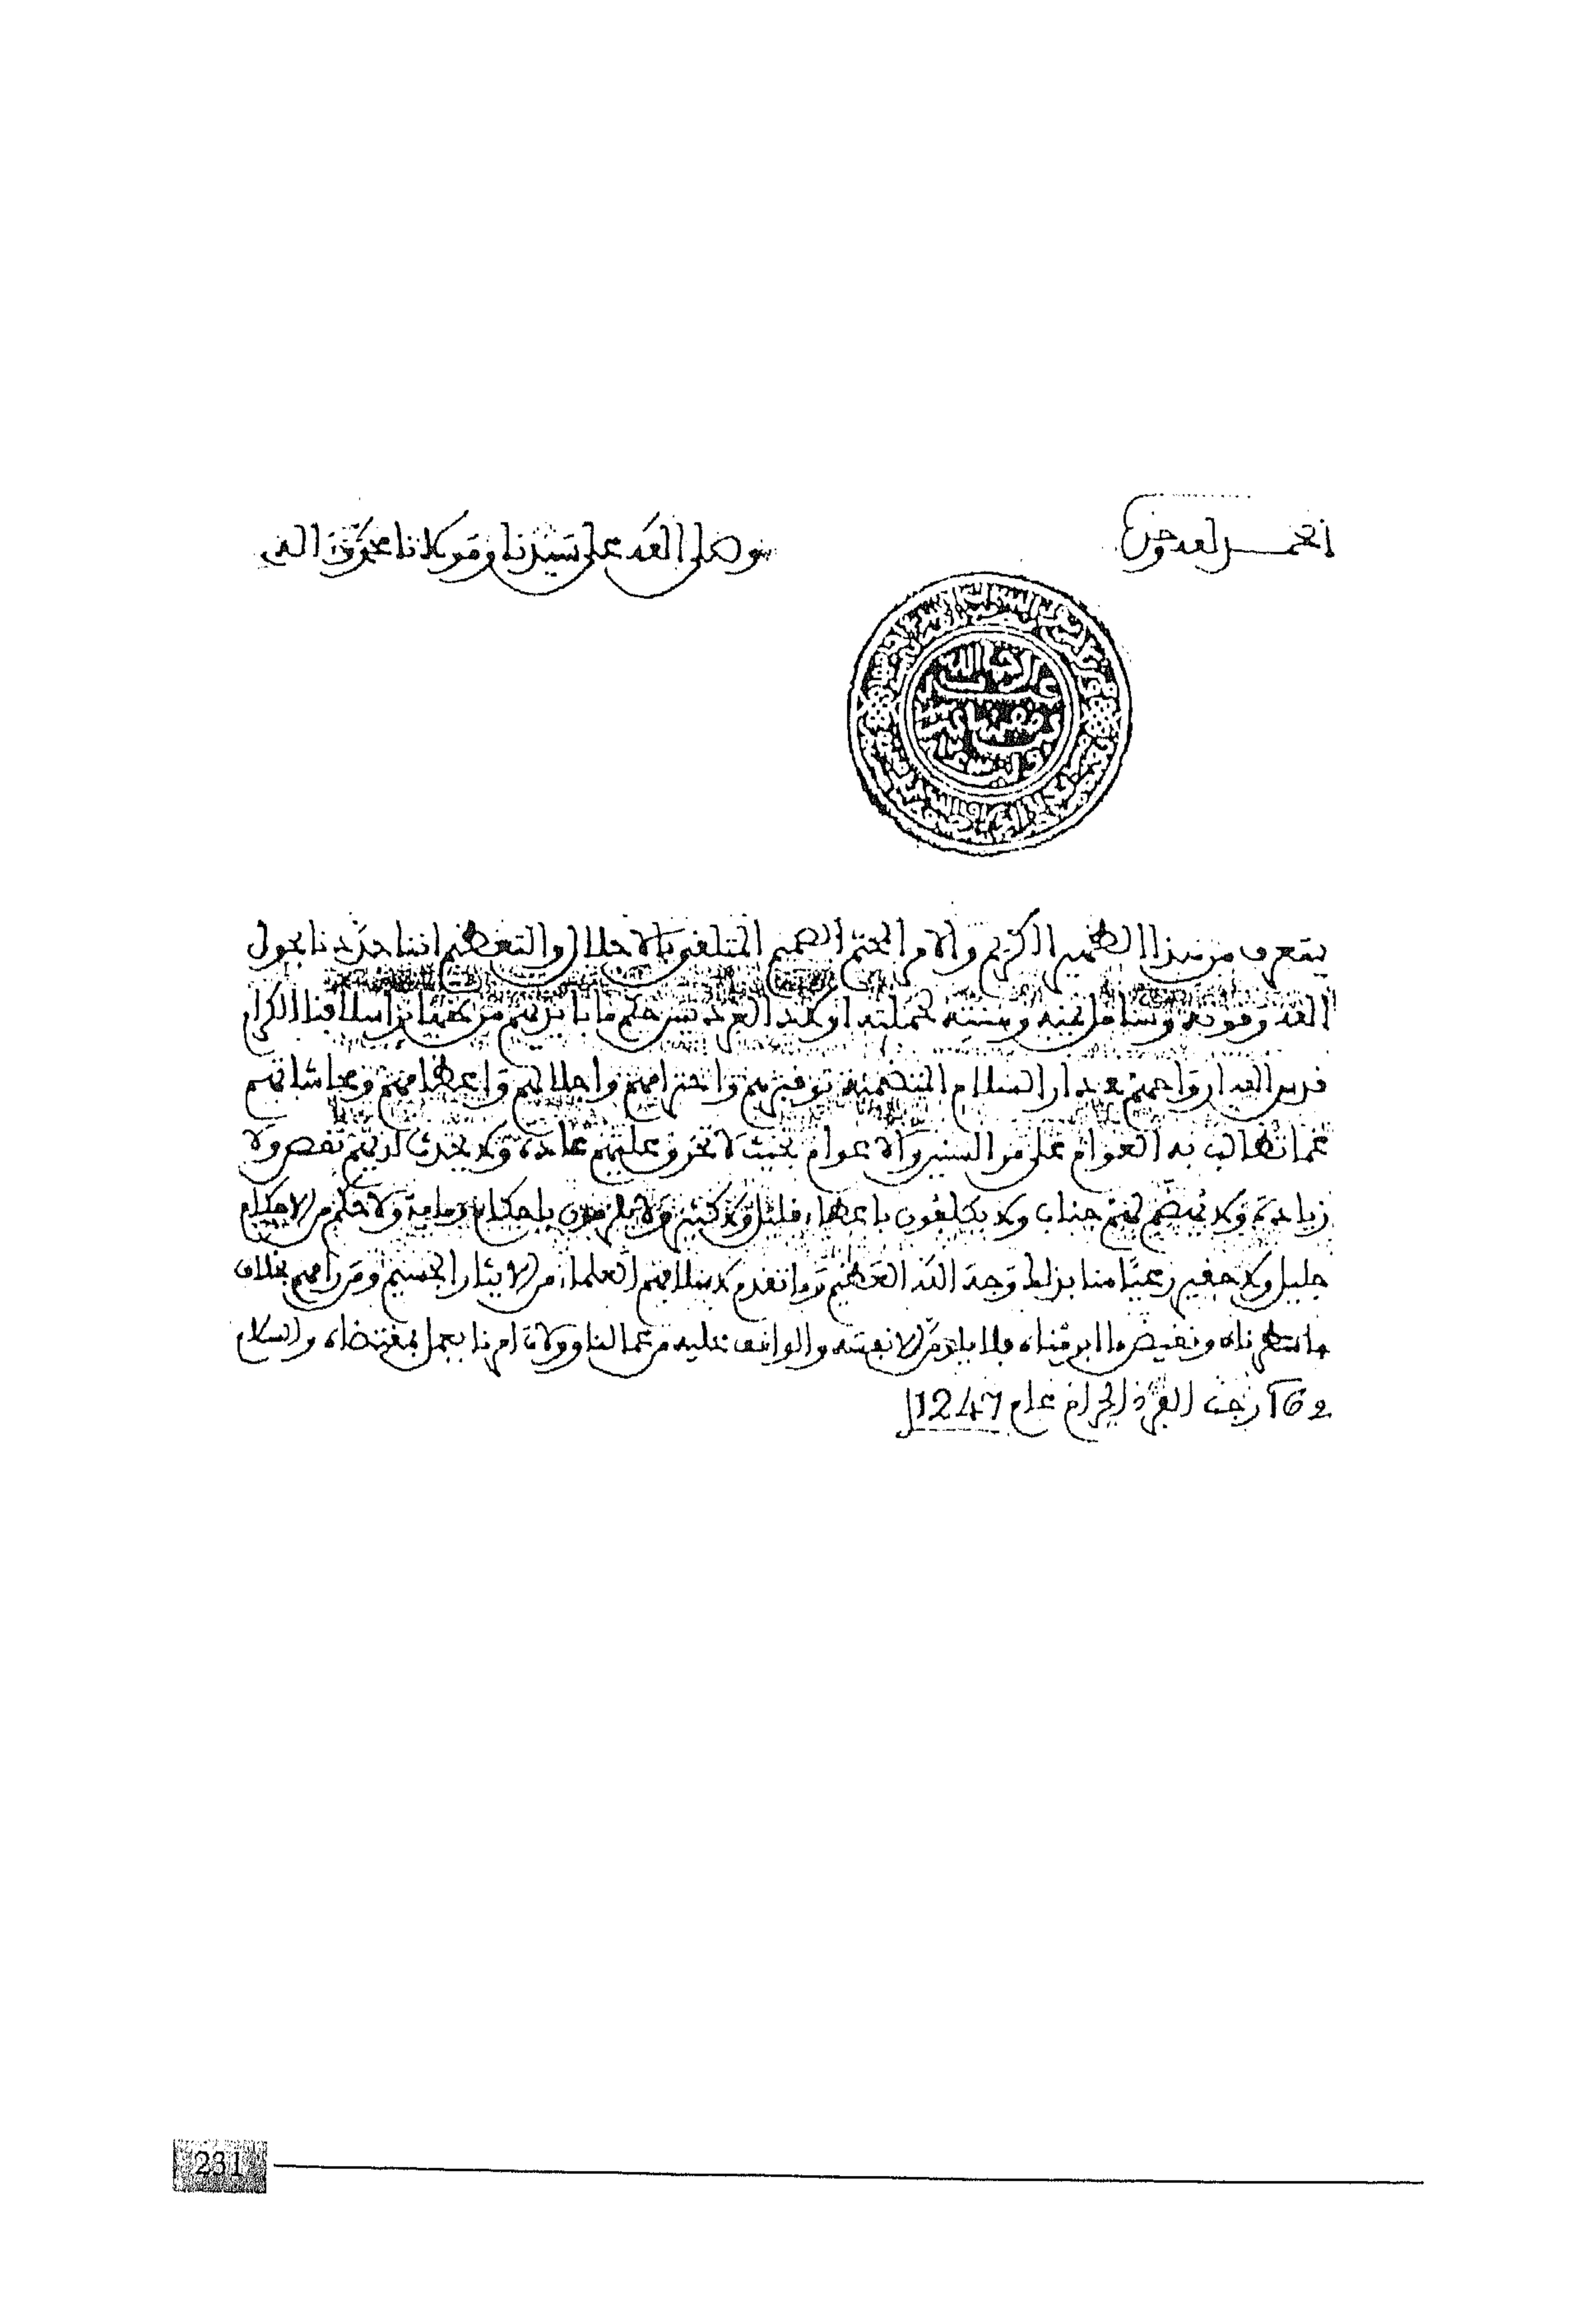 الحمد لله وحده
وصلى الله على سيدنا ومولانا محمد وآله
يتعرف من هذا الظهير الكريم والامر المحتم الصميم المتلقى بالاجلال والتعظيم اننا جددنا بحول
الله وقوته وشامل يمنه ومنته لحملته اولاد حكم ما بايديهم من ظهائر اسلافنا الكرام
قدس الله ارواحهم في دار السلام المتضمنة توقيرهم واحترامهم واجلالهم واعظامهم ومحاشاتهم
عما تطالب به العوام على مر السنين والاعوام بحيث لا تخرق عليهم عادة ولا يحدث لديهم نقص ولا
زيادة ولا يهضم لهم جناب ولا يكلفون باعطاء قليل ولا كثير ولا يلزمون باحكام ولا حكم من الاحكام
جليل ولا حقير رعيا منا بذلك وجه الله العظيم وما تقدم لاسلافهم العلماء من الايثار الجسيم ومن رامهم بخلاف
ما سطرناه ونقيض ما ابرمناه فلا يلم الا نفسه والواقف عليه من عمالنا وولاة امرنا يعمل بمقتضاه والسلام
في 16 رجب الفرد الحرام عام 1247
231